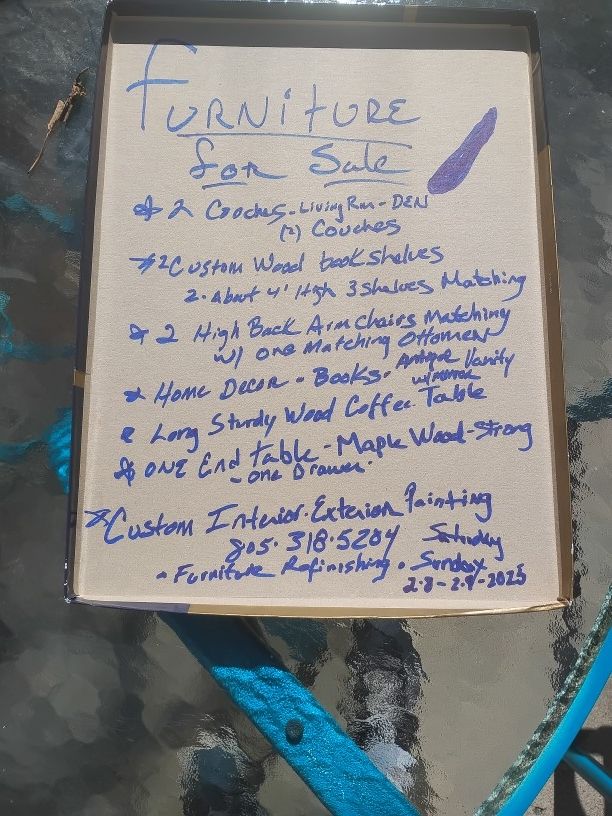 FURNITURE
for Sale
* 2 Cooches - Living Rm - DEN
(2) Couches
* 2 Custom Wood bookshelves
2 - About 4' High 3 shelves Matching
* 2 High Back Arm Chairs Matching
w/ one Matching Ottomen
* Home Decor - Books - Antique Vanity
w/mirror
* Long Sturdy Wood Coffee Table
* ONE End Table - Maple Wood - Strong
- one Drawer.
* Custom Interior - Exterior Painting
805 - 318 - 5204 Saturday
- Furniture Refinishing - Sunday
2-8-2-9-2025